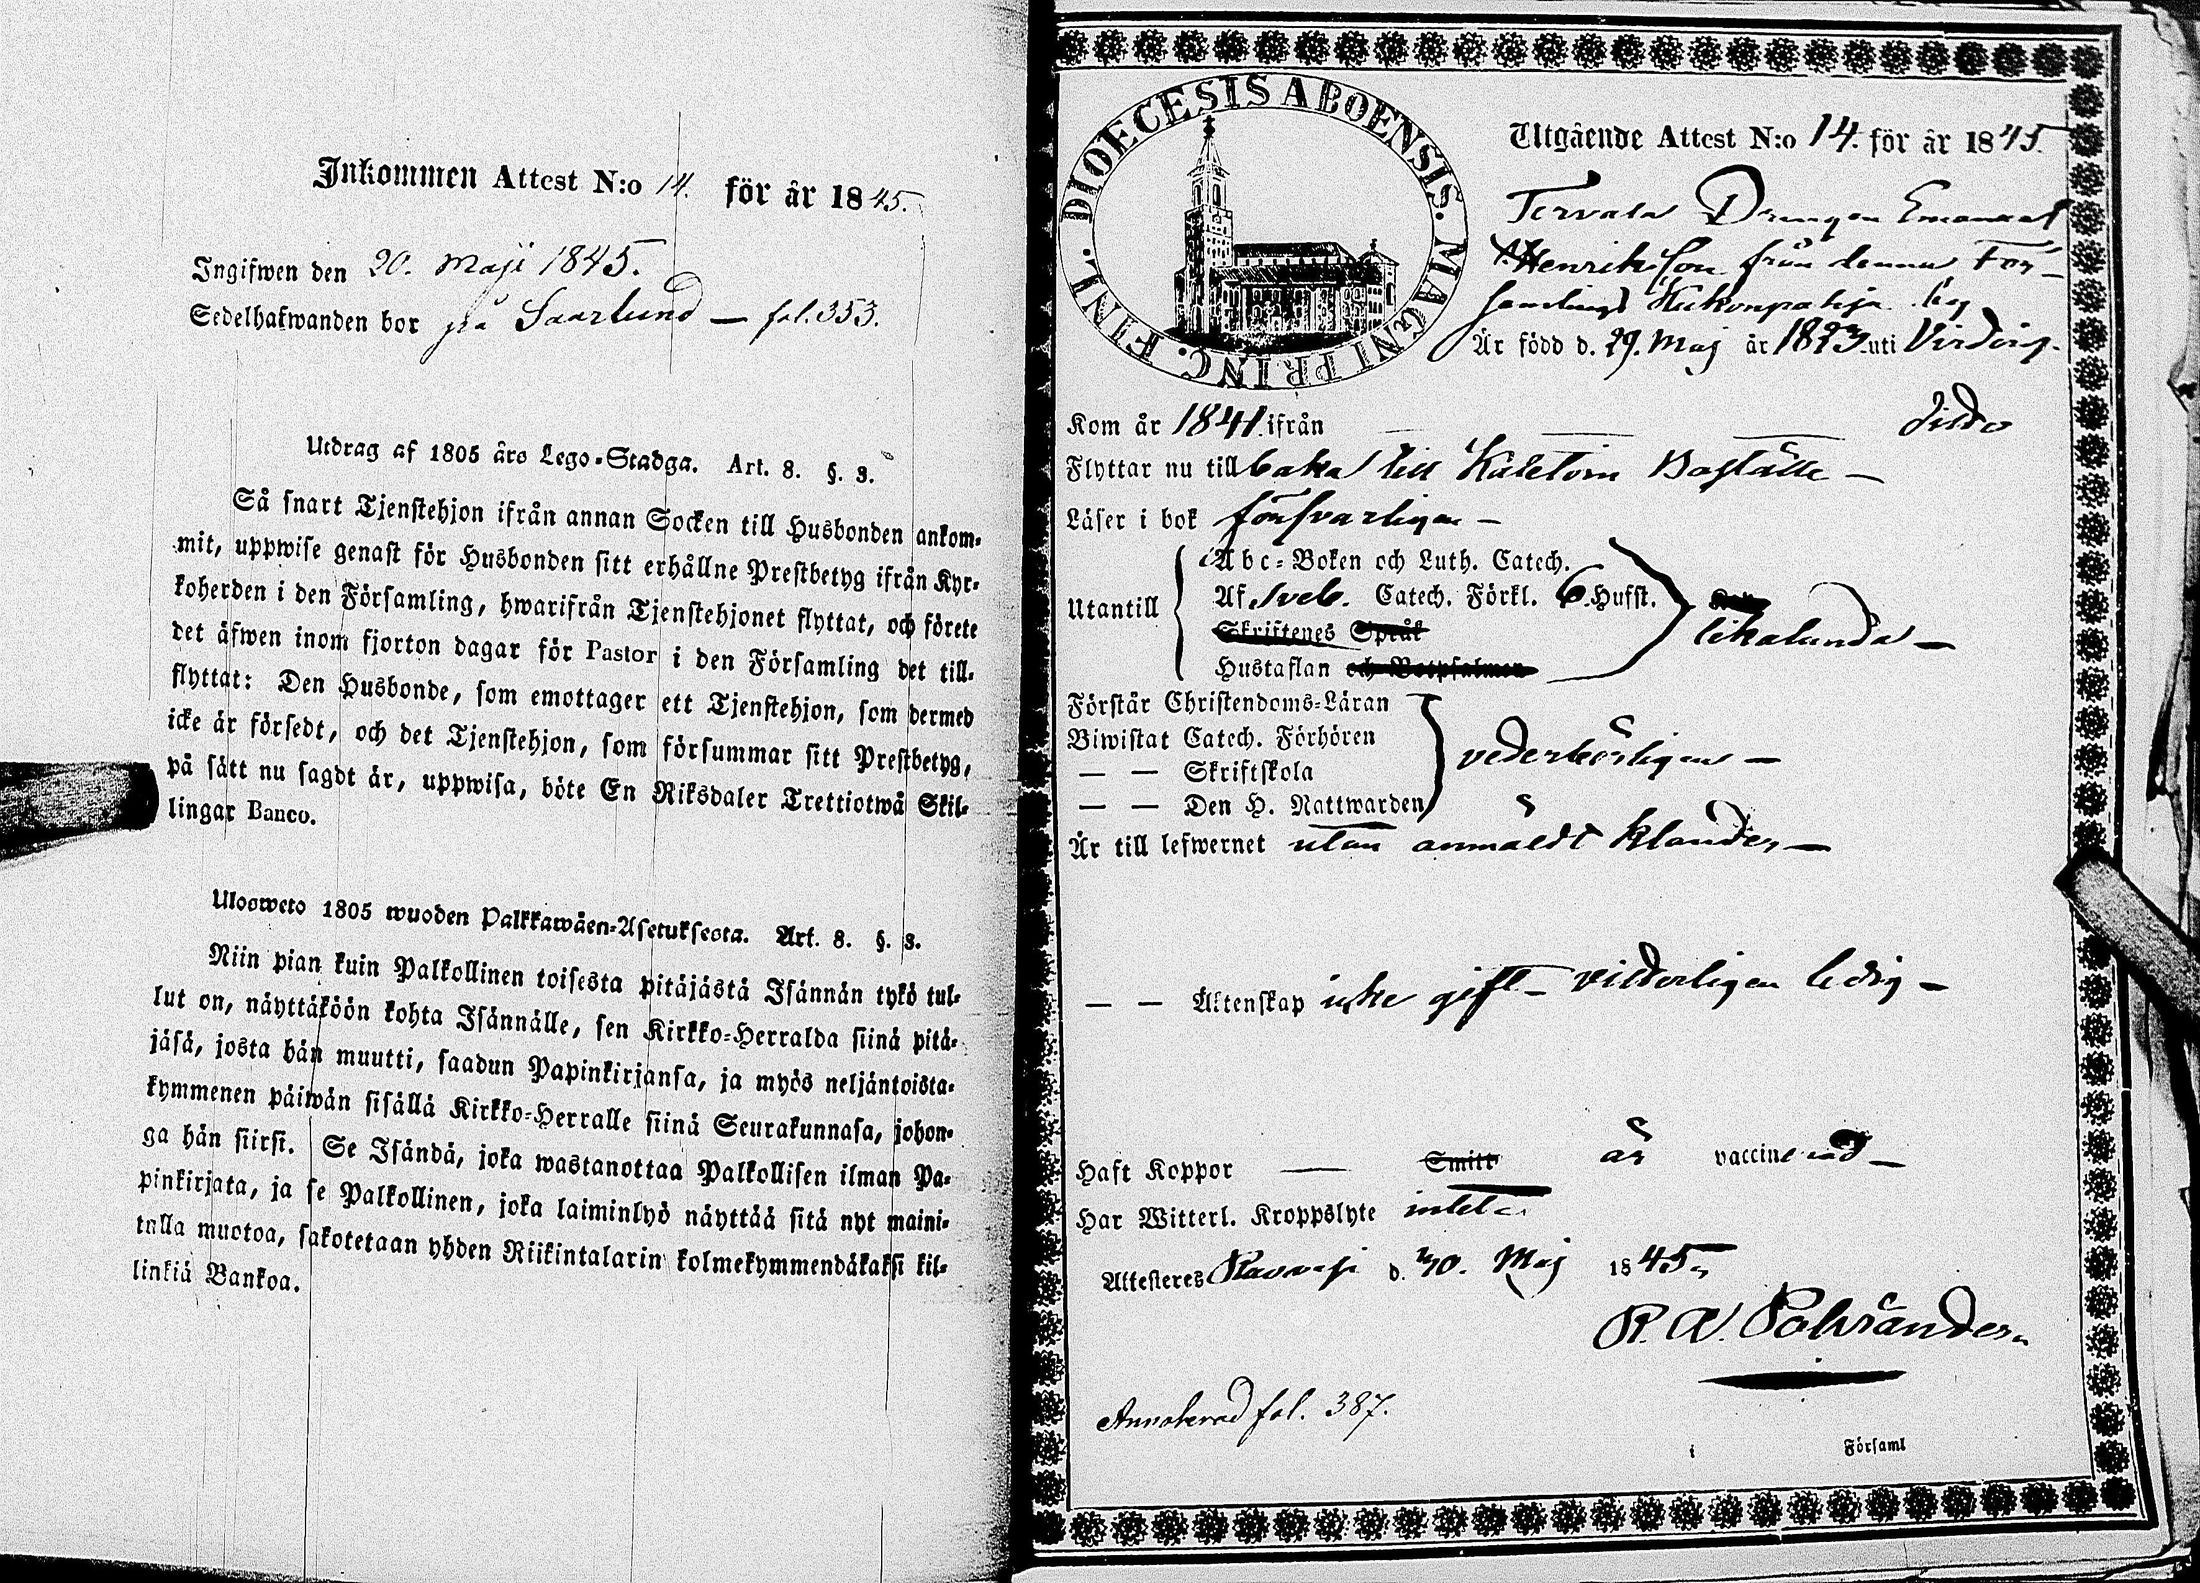 Inkommen Attest N:o 14. för år 1845.
Ingifwen den 20. Maji 1845.
Sedelhafwanden bor på Saarlund — fol. 353.
Utdrag af 1805 års Lego-Stadga. Art. 8. §. 3.
Så snart Tjenstehjon ifrån annan Socken till Husbonden ankom-
mit, uppwise genast för Husbonden sitt erhållne Prestbetyg ifrån Kyr-
koherden i den Församling, hwarifrån Tjenstehjonet flyttat, och förete
det äfwen inom fjorton dagar för Pastor i den Församling det till-
flyttat: Den Husbonde, som emottager ett Tjenstehjon, som dermed
icke är försedt, och det Tjenstehjon, som försummar sitt Prestbetyg,
på sätt nu sagdt är, uppwisa, böte En Riksdaler Trettiotwå Skil-
lingar Banco.
Uloswets 1805 wuoden Palkkawäen-Asetuksesta. Art. 8. §. 3.
Niin pian kuin Palkollinen toisesta pitäjästä Isännän tykö tul-
lut on, näyttäköön kohta Isännälle, sen Kirkko-Herralda siinä pitä-
jäsä, josta hän muutti, saadun Papinkirjansa, ja myös neljäntoista-
kymmenen päiwän sisällä Kirkko-Herralle siinä Seurakunnasa, johon-
ga hän siirsi. Se Isändä, joka wastanottaa Palkollisen ilman Pa-
pinkirjata, ja se Palkollinen, joka laiminlyö näyttää sitä nyt maini-
tulla muotoa, sakotetaan yhden Riikintalarin kolmekymmendäkaksi kil-
linkiä Bankoa.
DIOECESIS ABOENSIS. MAGNI PRINC. FINL.
Utgående Attest N:o 14. för år 1845.
Drengen Emanuel
Henriksson från denna För-
samlings
Är född d. 29. Maj år 1823 uti
Kom år 1841 ifrån — — — dito
Flyttar nu till baka till Boställe —
Läser i bok försvarligen —
Utantill
Abc-Boken och Luth. Catech.
Af Sveb. Catech. Förkl. 6. Hufst.
Skriftenes Språk
likaledes —
Hustaflan och Botpsalmen
Förstår Christendoms-Läran
Biwistat Catech. Förhören
vederbörligen —
— — Skriftskola
— — Den H. Nattwarden
Är till lefwernet utan anmäldt klander —
— — Äktenskap icke gift — veterligen ledig —
Haft Koppor — Smitt är vaccinerad —
Har Witterl. Kroppslyte intet
Attesteres d. 30. Maj 1845
Annoterad fol. 387.
i Församl